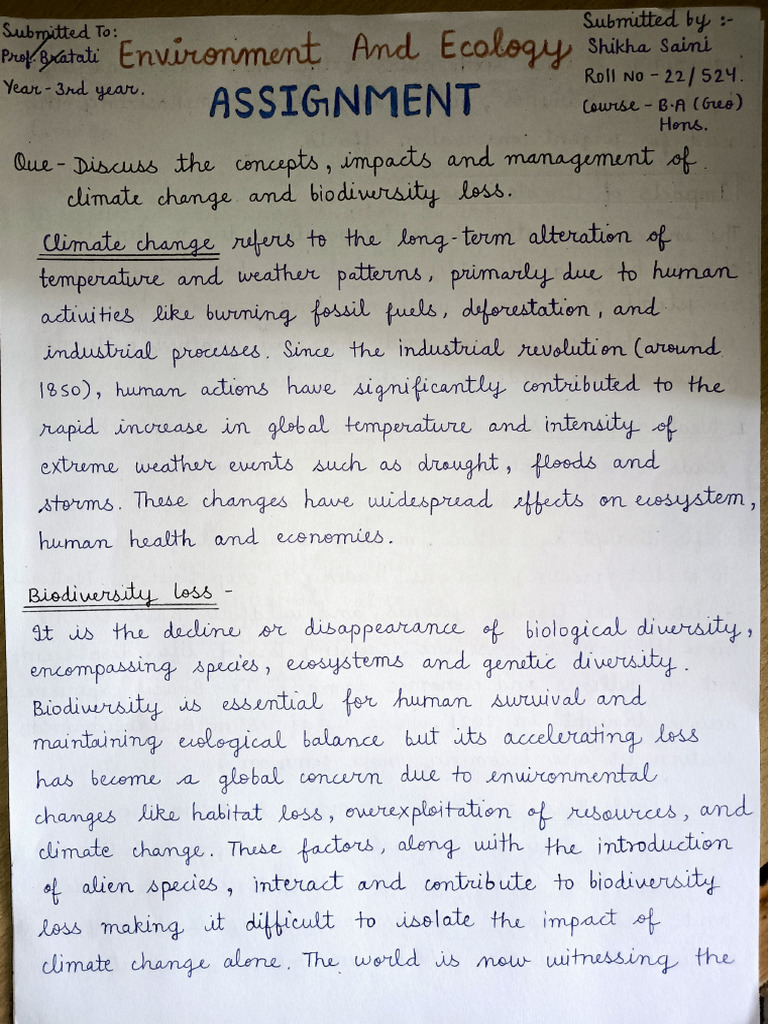 Submitted To:
Prof. Bratati
Year - 3rd year.
Environment And Ecology
ASSIGNMENT
Submitted by :-
Shikha Saini
Roll No - 22/524.
Course - B.A (Geo)
Hons.
Que - Discuss the concepts, impacts and management of
climate change and biodiversity loss.
Climate change refers to the long-term alteration of
temperature and weather patterns, primarly due to human
activities like burning fossil fuels, deforestation, and
industrial processes. Since the industrial revolution (around
1850), human actions have significantly contributed to the
rapid increase in global temperature and intensity of
extreme weather events such as drought, floods and
storms. These changes have widespread effects on ecosystem,
human health and economies.
Biodiversity loss -
It is the decline or disappearance of biological diversity,
encompassing species, ecosystems and genetic diversity.
Biodiversity is essential for human survival and
maintaining ecological balance but its accelerating loss
has become a global concern due to environmental
changes like habitat loss, overexploitation of resources, and
climate change. These factors, along with the introduction
of alien species, interact and contribute to biodiversity
loss making it difficult to isolate the impact of
climate change alone. The world is now witnessing the